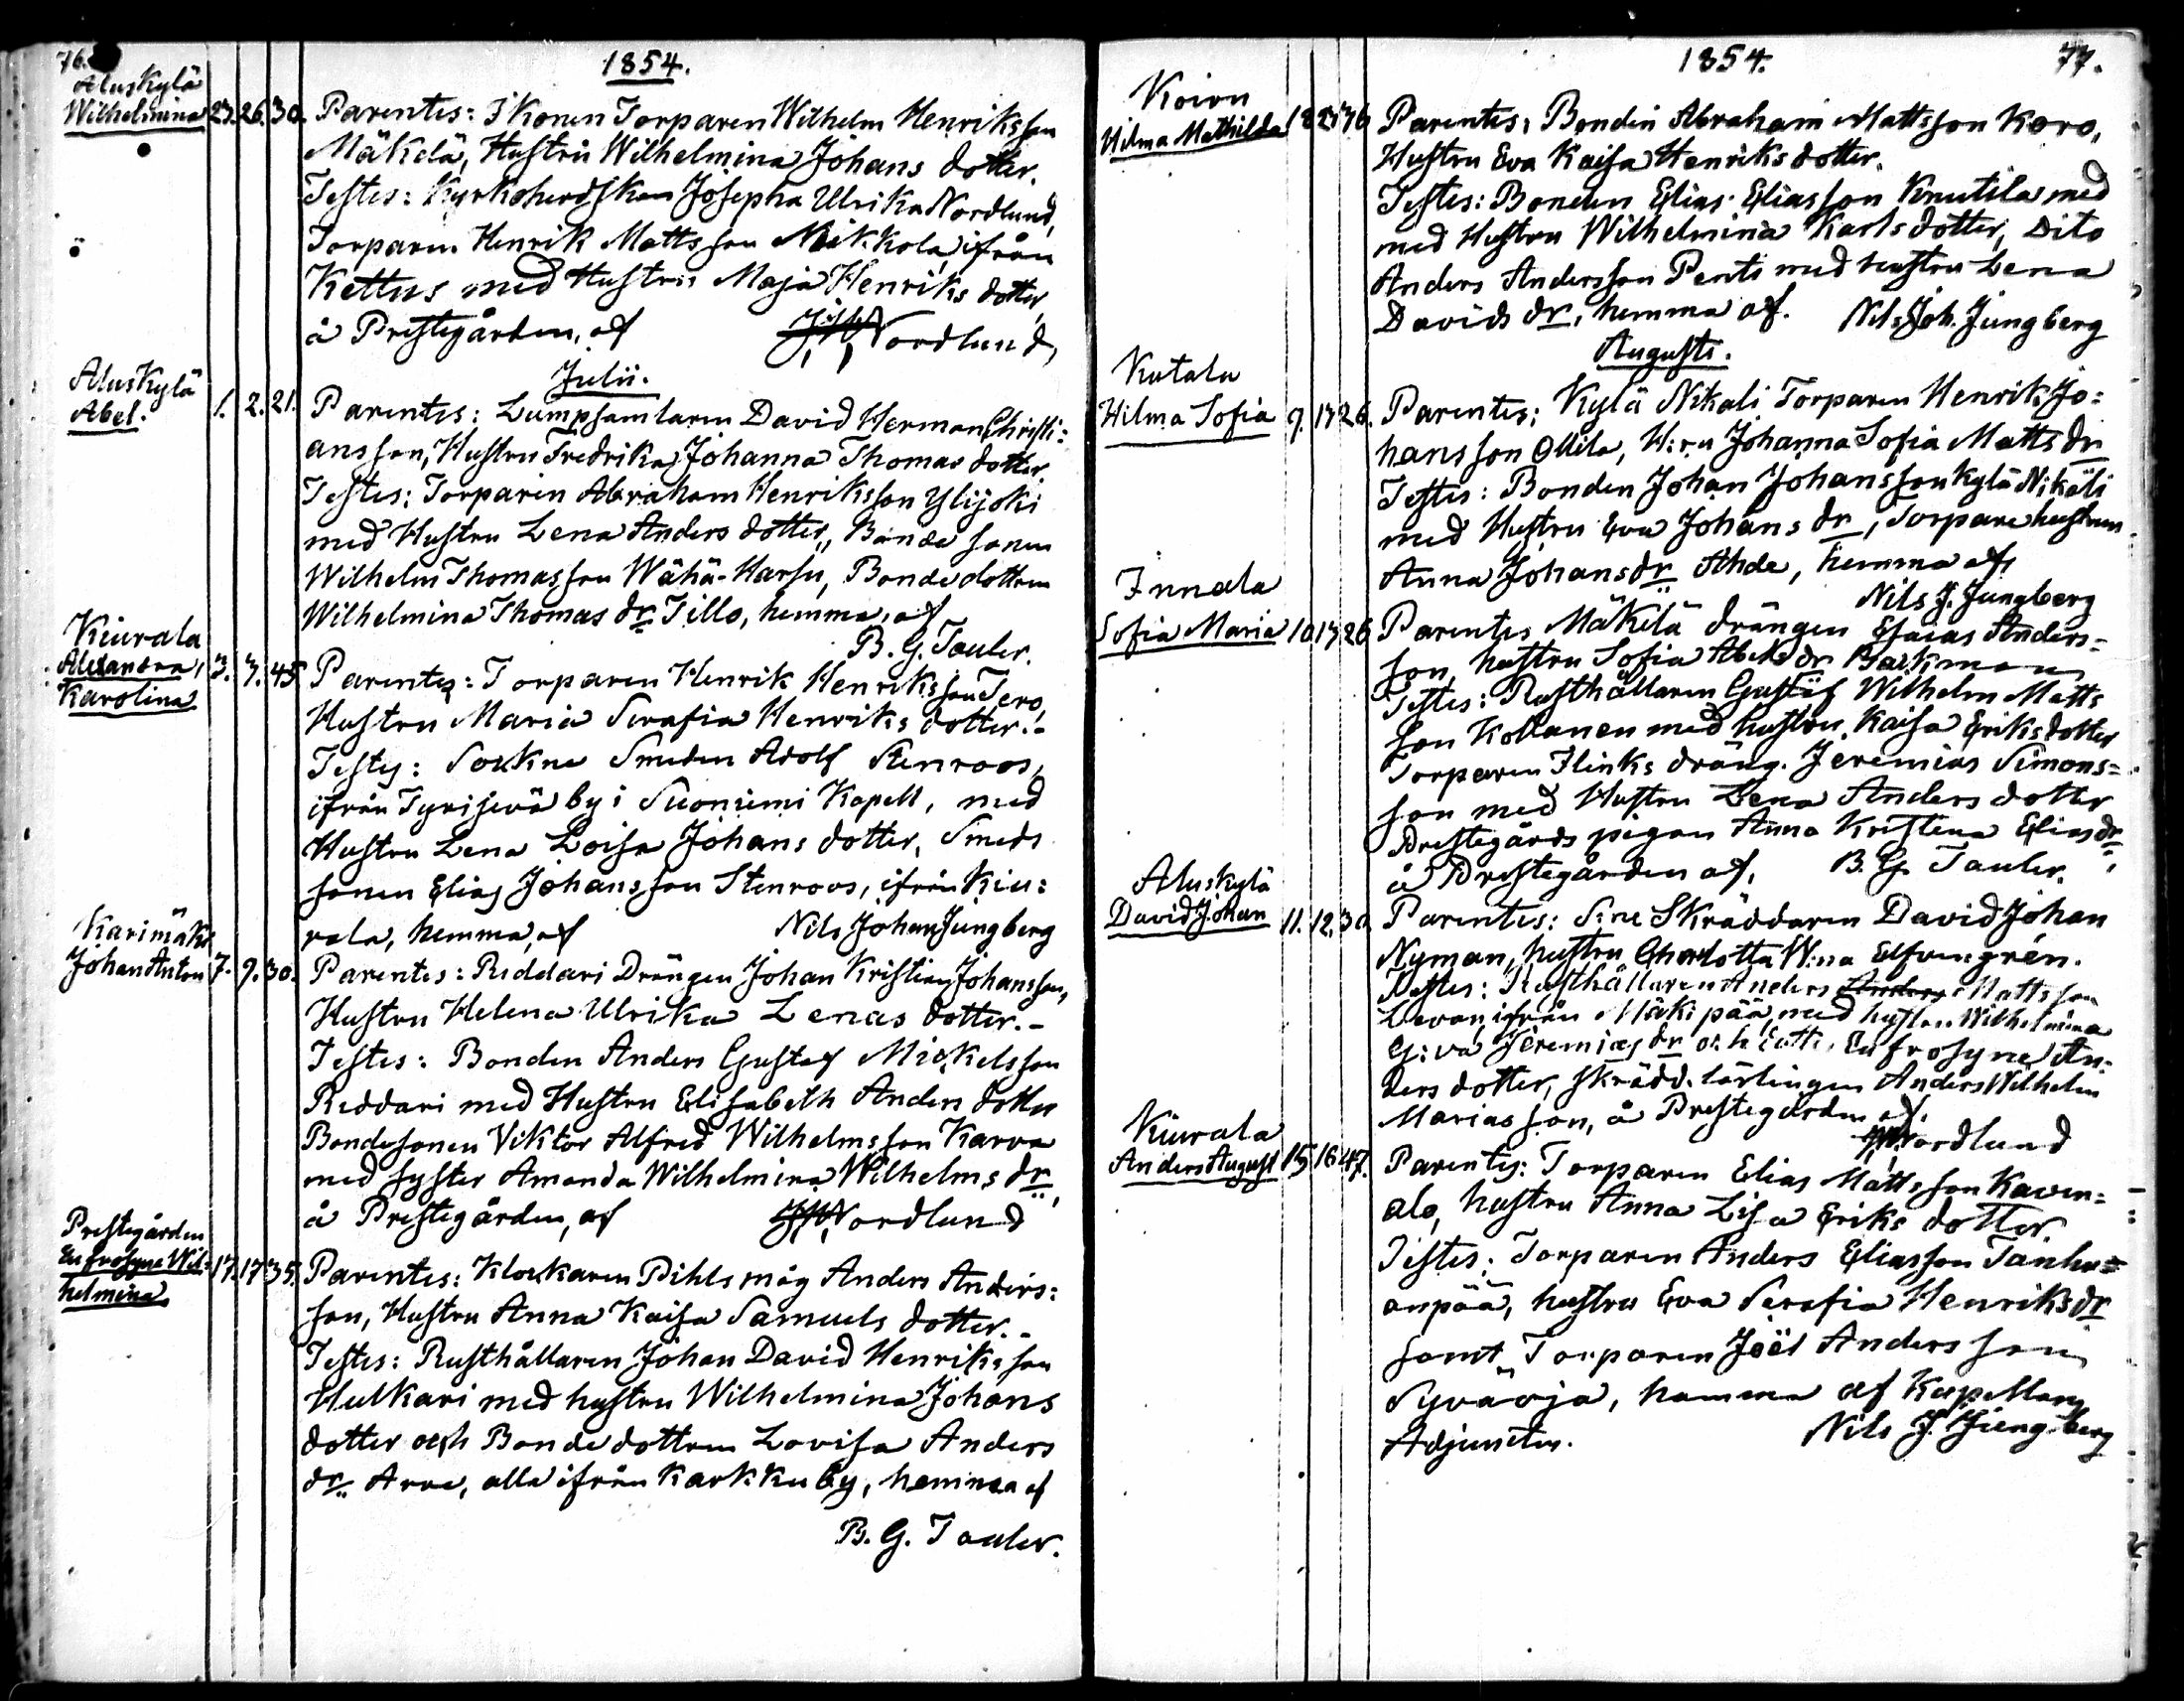 76.
1854.
Aluskylä
Wilhelmina 23. 26. 30. Parentes: Ikonen Torparen Wilhelm Henriksson
Mäkelä, Hustru Wilhelmina Johans dotter.
Testes: Kyrkoherdskan Josepha Ulrika Nordlund,
Torparen Henrik Mattsson Nikkola ifrån
Kettus med Hustru Maja Henriks dotter,
å Prestegården, af Nordlund,
Julii.
Aluskylä
Abel. 1. 2. 21. Parentes: Lumpsamlaren David Herman Christi:
ansson, Hustru Fredrika Johanna Thomas dotter
Testes: Torparen Abraham Henriksson Ylijoki
med Hustru Lena Anders dotter, Bonde sonen
Wilhelm Thomasson Wähä-Harsu, Bondedottren
Wilhelmina Thomas dr Tillo, hemma, af
B. G. Tauler.
Kiurala
Alexandra 3. 7. 45 Parentes: Torparen Henrik Henriksson Tero,
Karolina
Hustru Maria Serafia Henriks dotter.-
Testes: Sockne Smeden Adolf Stenroos,
ifrån Tyrisevä by i Suoniemi Kapell, med
Hustru Lena Loisa Johans dotter, Smeds
sonen Elias Johansson Stenroos, ifrån Kiu:
rala, hemma, af Nils Johan Jungberg
Karimäki
Johan Anton 7. 9. 30. Parentes: Riddari Drängen Johan Kristian Johansson,
Hustru Helena Ulrika Lenas dotter.-
Testes: Bonden Anders Gustaf Mickelsson
Riddari med Hustru Elisabeth Anders dotter
Bondesonen Viktor Alfred Wilhelmsson Karva
med syster Amanda Wilhelmina Wilhelms dr,
å Prestegården, af Nordlund
Prestegården
Eufrosyne Wil= 17. 17. 35. Parentes: Klockaren Pihls måg Anders Anders:
helmina
son, Hustru Anna Kaisa Samuels dotter.-
Testes: Rusthållaren Johan David Henriksson
Hulkari med hustru Wilhelmina Johans
dotter och Bonde dottren Lovisa Anders
dr. Arra, alla ifrån Karkku by, hemma af
B. G. Tauler.
1854. 77.
Koivu
Hilma Mathilda 18 23 36 Parentes: Bonden Abraham Mattsson Koro,
Hustru Eva Kaisa Henriks dotter.
Testes: Bonden Elias Eliasson Knutila med
med Hustru Wilhelmina Karls dotter, Dito
Anders Andersson Penti med hustru Lena
Davids dr, hemma af. Nils Joh. Jungberg
Augusti.
Kutala
Hilma Sofia 9. 13 26. Parentes: Kylä Nikali Torparen Henrik Jo:
hansson Ollila, H:ru Johanna Sofia Matts dr
Testes: Bonden Johan Johansson Kylä Nikali
med Hustru Eva Johans dr, Torpare hustrun
Anna Johans dr Ahde, hemma af
Nils J. Jungberg
Innala
Sofia Maria 10 13 26 Parentes Mäkelä drängen Esaias Anders=
son, hustru Sofia Abels dr Backman
Testes: Rusthållaren Gustaf Wilhelm Matts
son Kollanen med hustru Kaisa Eriks dotter
Torparen Flinks dräng. Jeremias Simons=
son med Hustru Lena Anders dotter
Prestegårds pigan Anna Kristena Elias dr,
å Prestegården af. B. G. Tauler.
Aluskylä
David Johan 11. 12. 30. Parentes: S:ne Skräddaren David Johan
Nyman, hustru Charlotta W:na Elfvengrén.
Testes: Rusthållaren Anders Mattsson
Levon, ifrån Häkipää, med hustru Wilhelmina
Jeremias dr och Eufrosyne An:
ders dotter, skrädd. lärlingen Anders Wilhelm
Mariasson, å Prestegården af.
Nordlund
Kiurala
Anders August 15 16 47. Parentes: Torparen Elias Mattsson Kaven=
ala, hustru Anna Lisa Eriks dotter
Testes: Torparen Anders Eliasson Tanhu=
anpää, hustru Eva Serafia Henriks dr
samt Torparen Joël Andersson
Syväoja, hemma af Kapellans
Adjuncten. Nils J. Jungberg